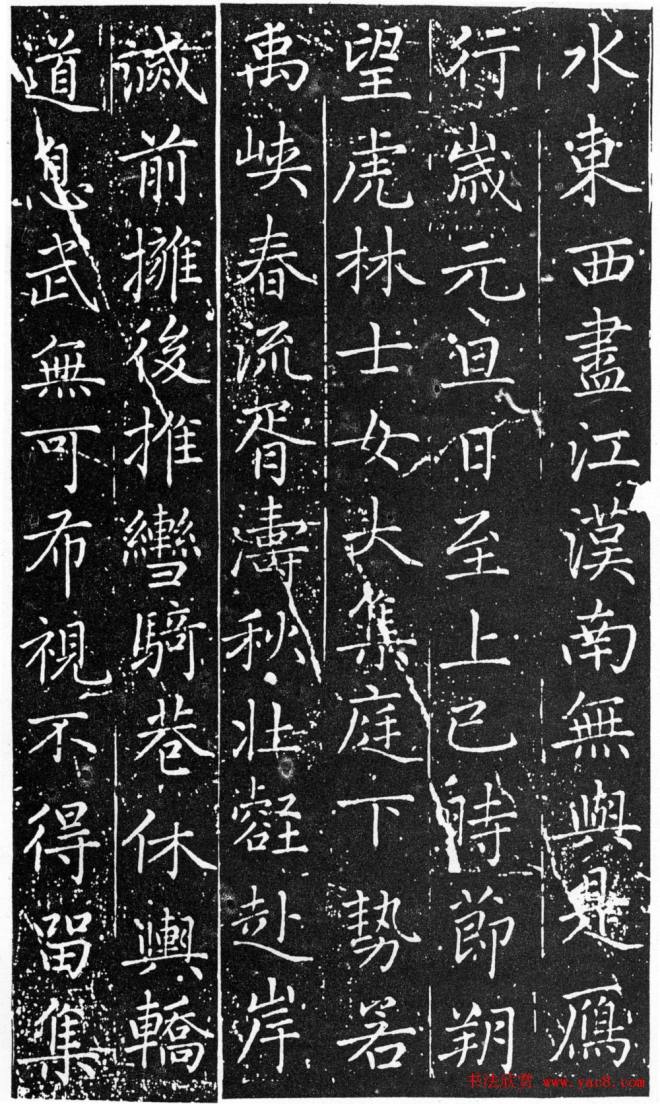 水東西盡江漢南無與是鴈
行歲元旦日至上巳時節朔
望虎林士女大集庭下勢若
禹峽春流胥濤秋壯壑赴岸
滅前擁後推彎騎巷休輿轎
道息武無可布視不得留集
书法欣赏 www.yac8.com